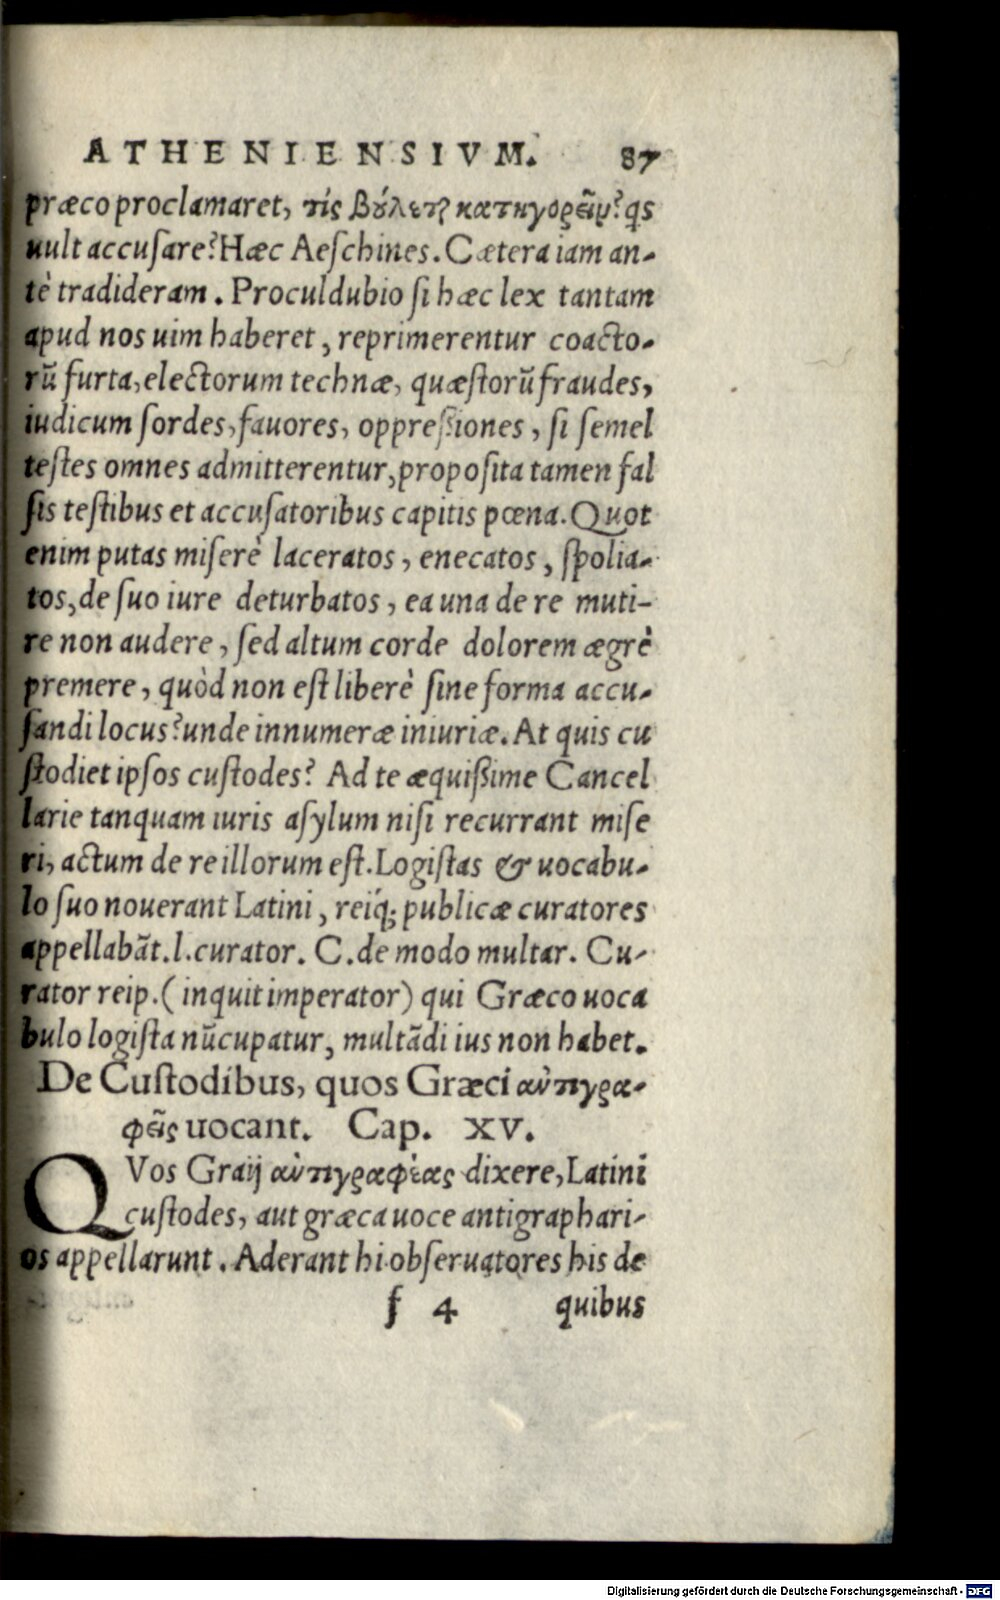 ATHENIENSIVM. 87
præco proclamaret, τίς βούλεται κατηγορεῖν? qs
uult accusare? Hæc Aeschines. Cætera iam an-
tè tradideram. Proculdubio si hæc lex tantam
apud nos uim haberet, reprimerentur coacto-
rū furta, electorum technæ, quæstorū fraudes,
iudicum sordes, fauores, oppressiones, si semel
testes omnes admitterentur, proposita tamen fal
sis testibus et accusatoribus capitis pœna. Quot
enim putas miserè laceratos, enecatos, spolia-
tos, de suo iure deturbatos, ea una de re muti-
re non audere, sed altum corde dolorem ægrè
premere, quòd non est liberè sine forma accu-
sandi locus? unde innumeræ iniuriæ. At quis cu
stodiet ipsos custodes? Ad te æquißime Cancel
larie tanquam iuris asylum nisi recurrant mise
ri, actum de re illorum est. Logistas & uocabu-
lo suo nouerant Latini, reiq́; publicæ curatores
appellabāt. l. curator. C. de modo multar. Cu-
rator reip. (inquit imperator) qui Græco uoca
bulo logista nūcupatur, multādi ius non habet.
De Custodibus, quos Græci ἀντιγρα-
φεῖς uocant. Cap. XV.
QVos Graij ἀντιγραφέας dixere, Latini
custodes, aut græca uoce antigraphari-
os appellarunt. Aderant hi obseruatores his de
f 4 quibus
Digitalisierung gefördert durch die Deutsche Forschungsgemeinschaft - DFG